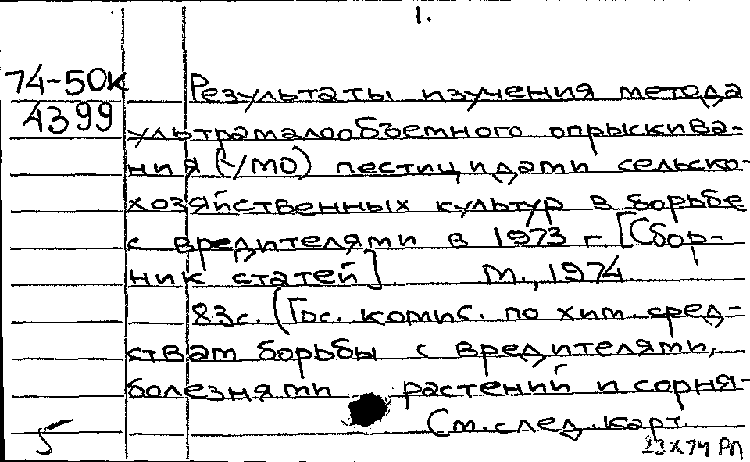 1.
74-50к
4399
Результаты изучения метода
ультрамалообъемного опрыскива-
ния (УМО) пестицидами сельско-
хозяйственных культур в борьбе
с вредителями в 1973 г. [Сбор-
ник статей]. М., 1974
83с. (Гос. комис. по хим. сред-
ствам борьбы с вредителями,
болезнями растений и сорня-
См. след. карт.
5
23 X 74 РП